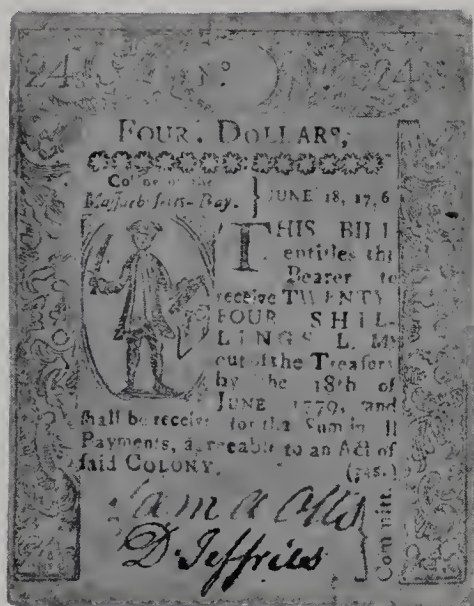 24 No 24
FOUR. DOLLARS,
Colony of the
Massachusetts-Bay. } JUNE 18, 1776
THIS BILL
entitles the
Bearer to
receive TWENTY
FOUR SHIL-
LINGS L. My
out of the Treasury
by the 18th of
JUNE 1779, and
shall be receiv'd for tha Sum in all
Payments, agreeable to an Act of
said COLONY. (24s.)
Sam A Otis
D. Jeffries
Committ.